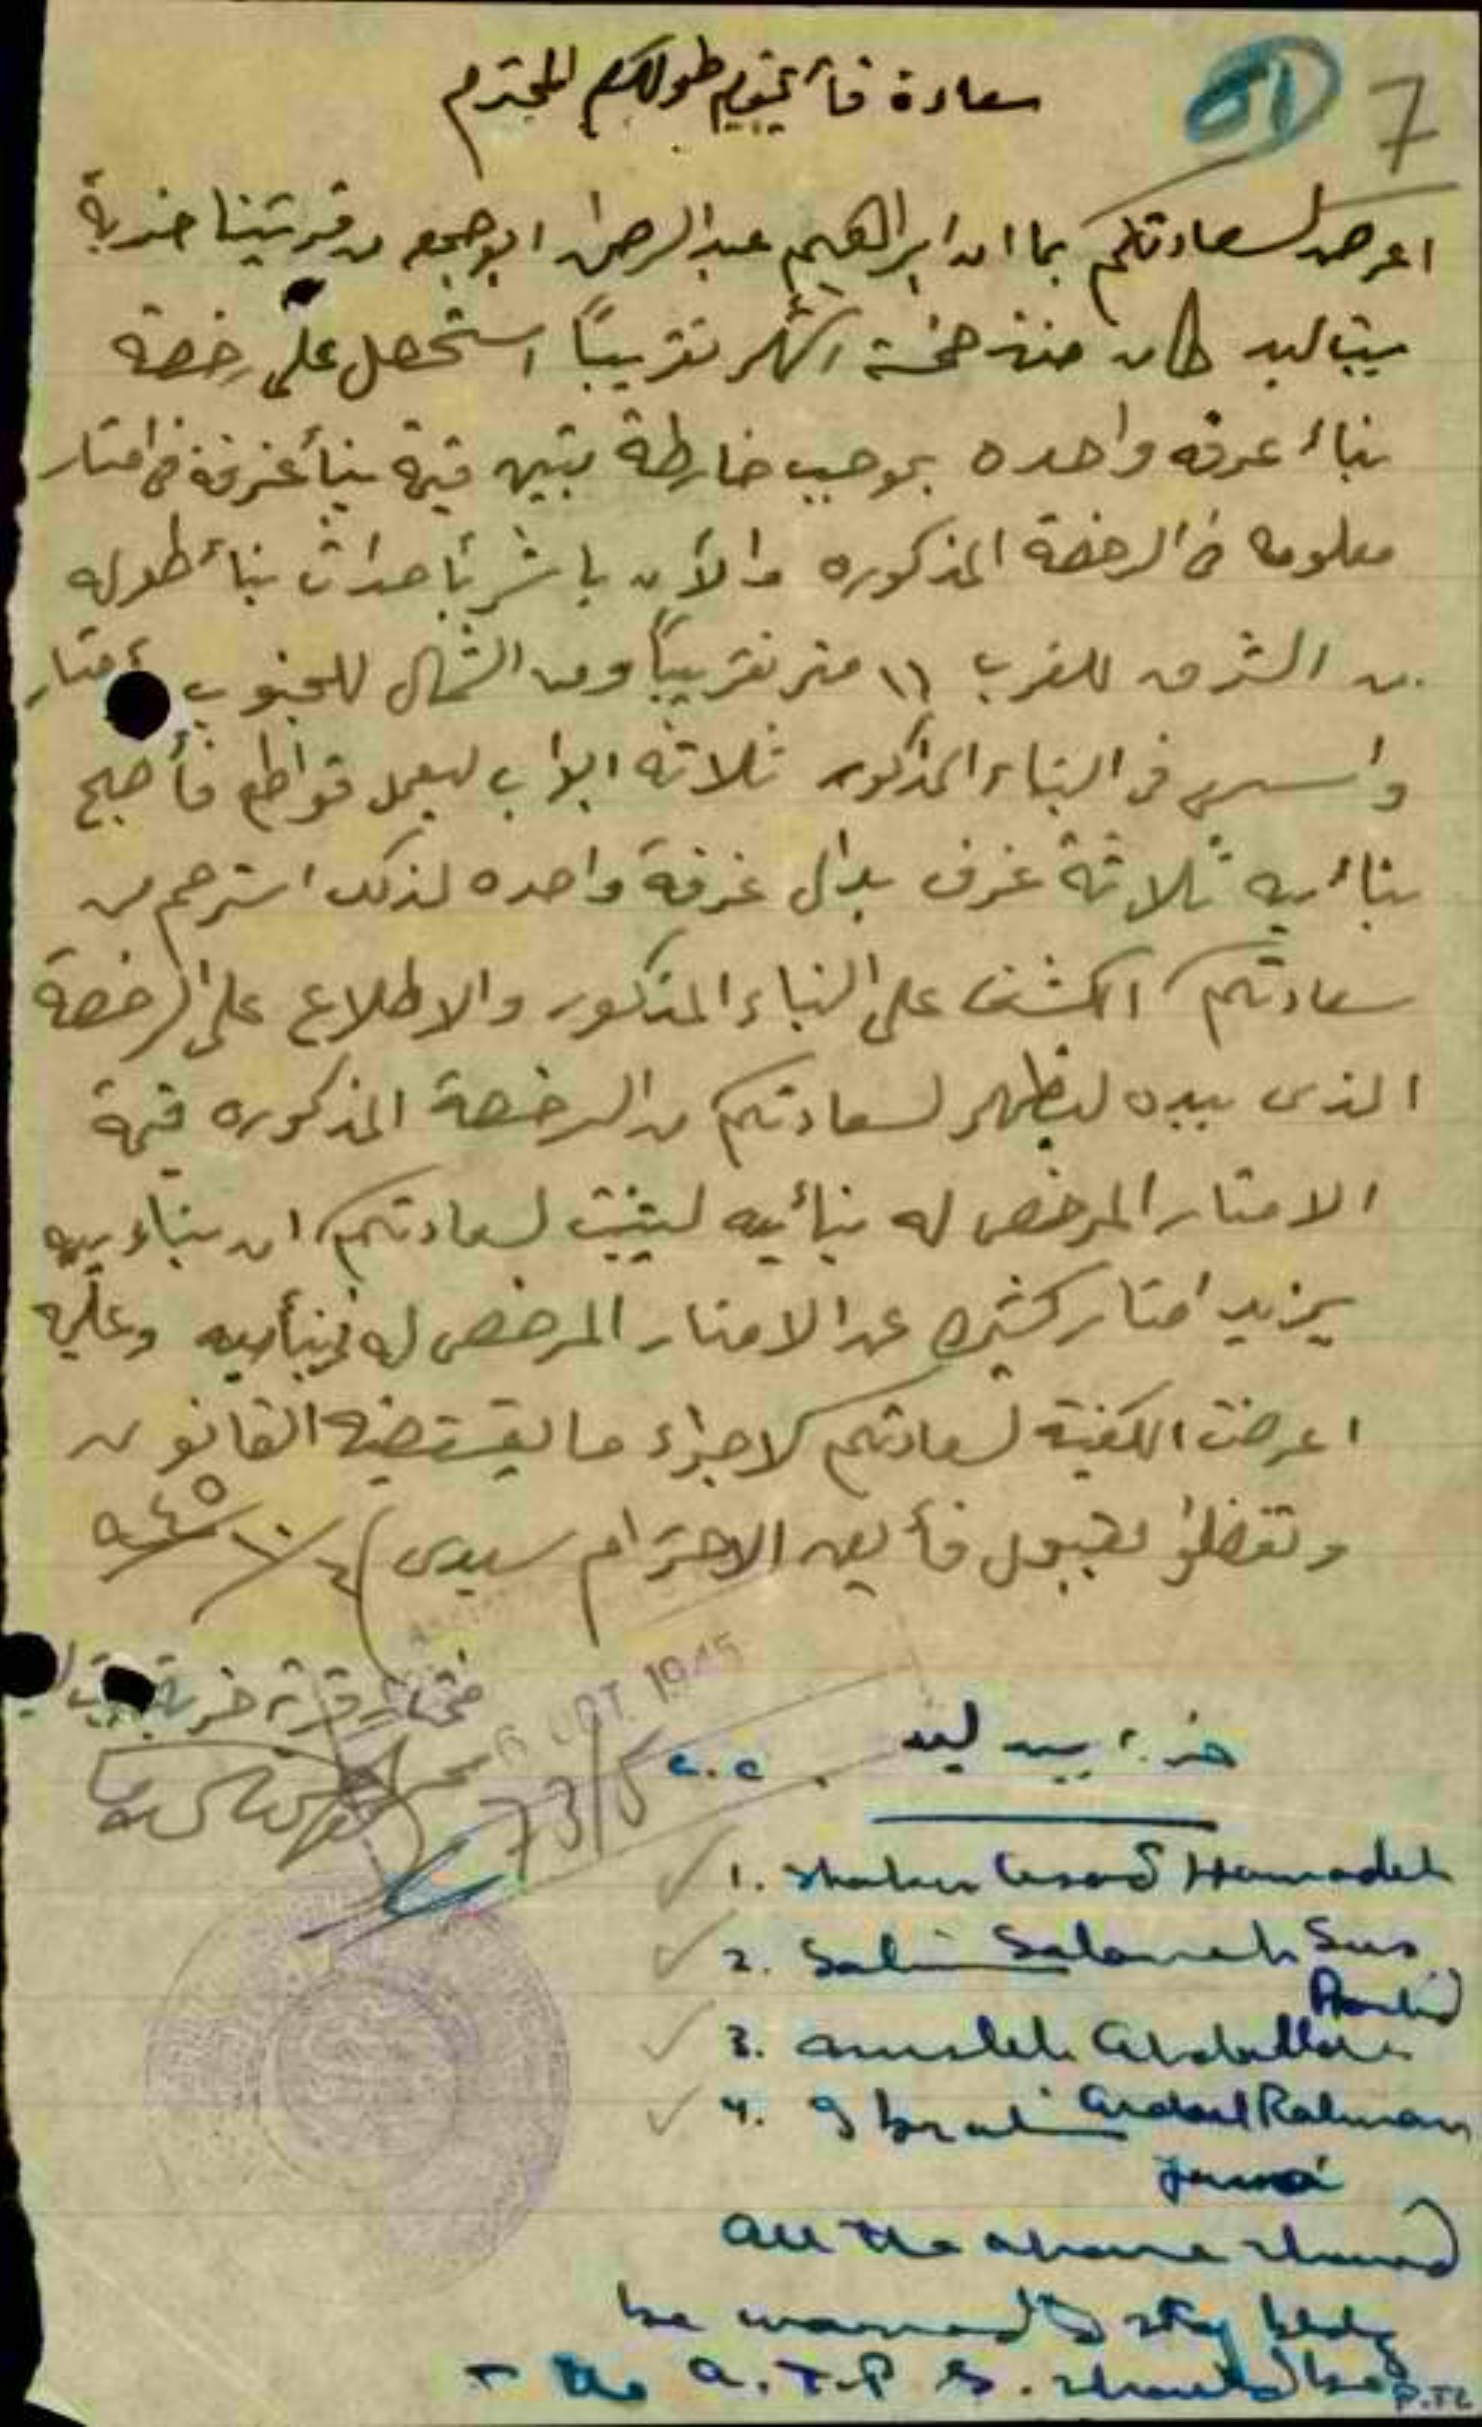 7
51
سعادة قائمقام طولكرم المحترم
اعرض لسعادتكم بما ان ابراهيم عبد الرحمن ابو جمعه من قريتنا خربة
بيت ليد كان منذ خمسة اشهر تقريباً استحصل على رخصة
بناء غرفه واحده بموجب خارطة تبين قيمة بنأ غرفة في امتار
معلومه في الرخصة المذكوره والآن باشر بأحداث بنأ طوله
من الشرق للغرب ١١ متر تقريباً ومن الشمال للجنوب امتار
واسس في البناء المذكور ثلاثه ابواب ليعمل قواطع فأصبح
بنائيه ثلاثة غرف بدال غرفة واحده لذلك استرحم من
سعادتكم الكشف على البناء المذكور والاطلاع على الرخصة
الذي بيده ليظهر لسعادتكم من الرخصة المذكوره قيمة
الامتار المرخص له بنأيه ليثبت لسعادتكم ان بناءيه
يزيد امتار كثيره عن الامتار المرخص له بنأيه وعليه
اعرضت الكفية لسعادتكم لاجراء ما يقتضيه القانون
وتفضلوا بقبول فأيق الاحترام سيدى ٤/١٠/٩٤٥
مختار قرية خربة بيت
6 OCT 1945
73/5
c.c. خربة بيت ليد
1. Shaker Asad Hamadeh
2. Salim Salameh Sus
Rashid
3. Musleh Abdallah
4. Ibrahim Abdel Rahman
Juma
All the above should
be warned to stop bldg
+ the A.T.P.S. should be
P.T.O.